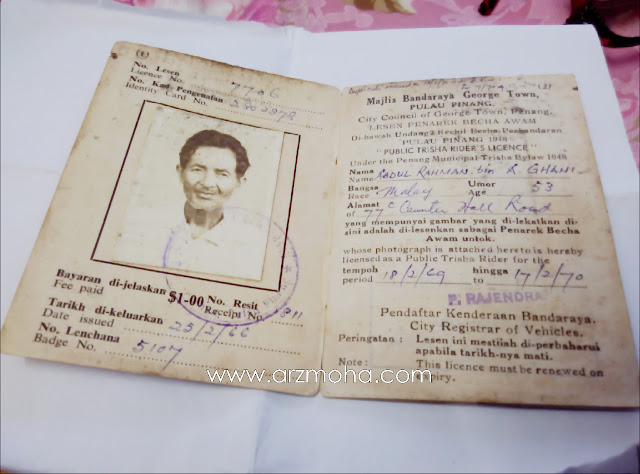 No. Lesen
Licence No. 7706
No. Kad Pengenalan
Identity Card No.
Bayaran di-jelaskan $1-00 No. Resit
Fee paid Receipt No. 811
Tarikh di-keluarkan
Date issued 25/2/66
No. Lenchana
Badge No. 5107
Majlis Bandaraya George Town,
PULAU PINANG.
City Council of George Town, Penang.
LESEN PENAREK BECHA AWAM
Di-bawah Undang2 Kechil Becha Perbandaran
PULAU PINANG 1948
"PUBLIC TRISHA RIDER'S LICENCE"
Under the Penang Municipal Trisha Bylaw 1948
Nama
Name ABDUL RAHMAN bin A GHANI
Bangsa Umor
Race Malay Age 53
Alamat
of 77 Hall Road
yang mempunyai gambar yang di-lekatkan di-
sini adalah di-lesenkan sabagai Penarek Becha
Awam untok.
whose photograph is attached hereto is hereby
licensed as a Public Trisha Rider for the
tempoh hingga
period 18/2/69 to 17/2/70
P. RAJENDRA
Pendaftar Kenderaan Bandaraya.
City Registrar of Vehicles.
Peringatan : Lesen ini mestilah di-perbaharui
apabila tarikh-nya mati.
Note : This licence must be renewed on
expiry.
www.arzmoha.com